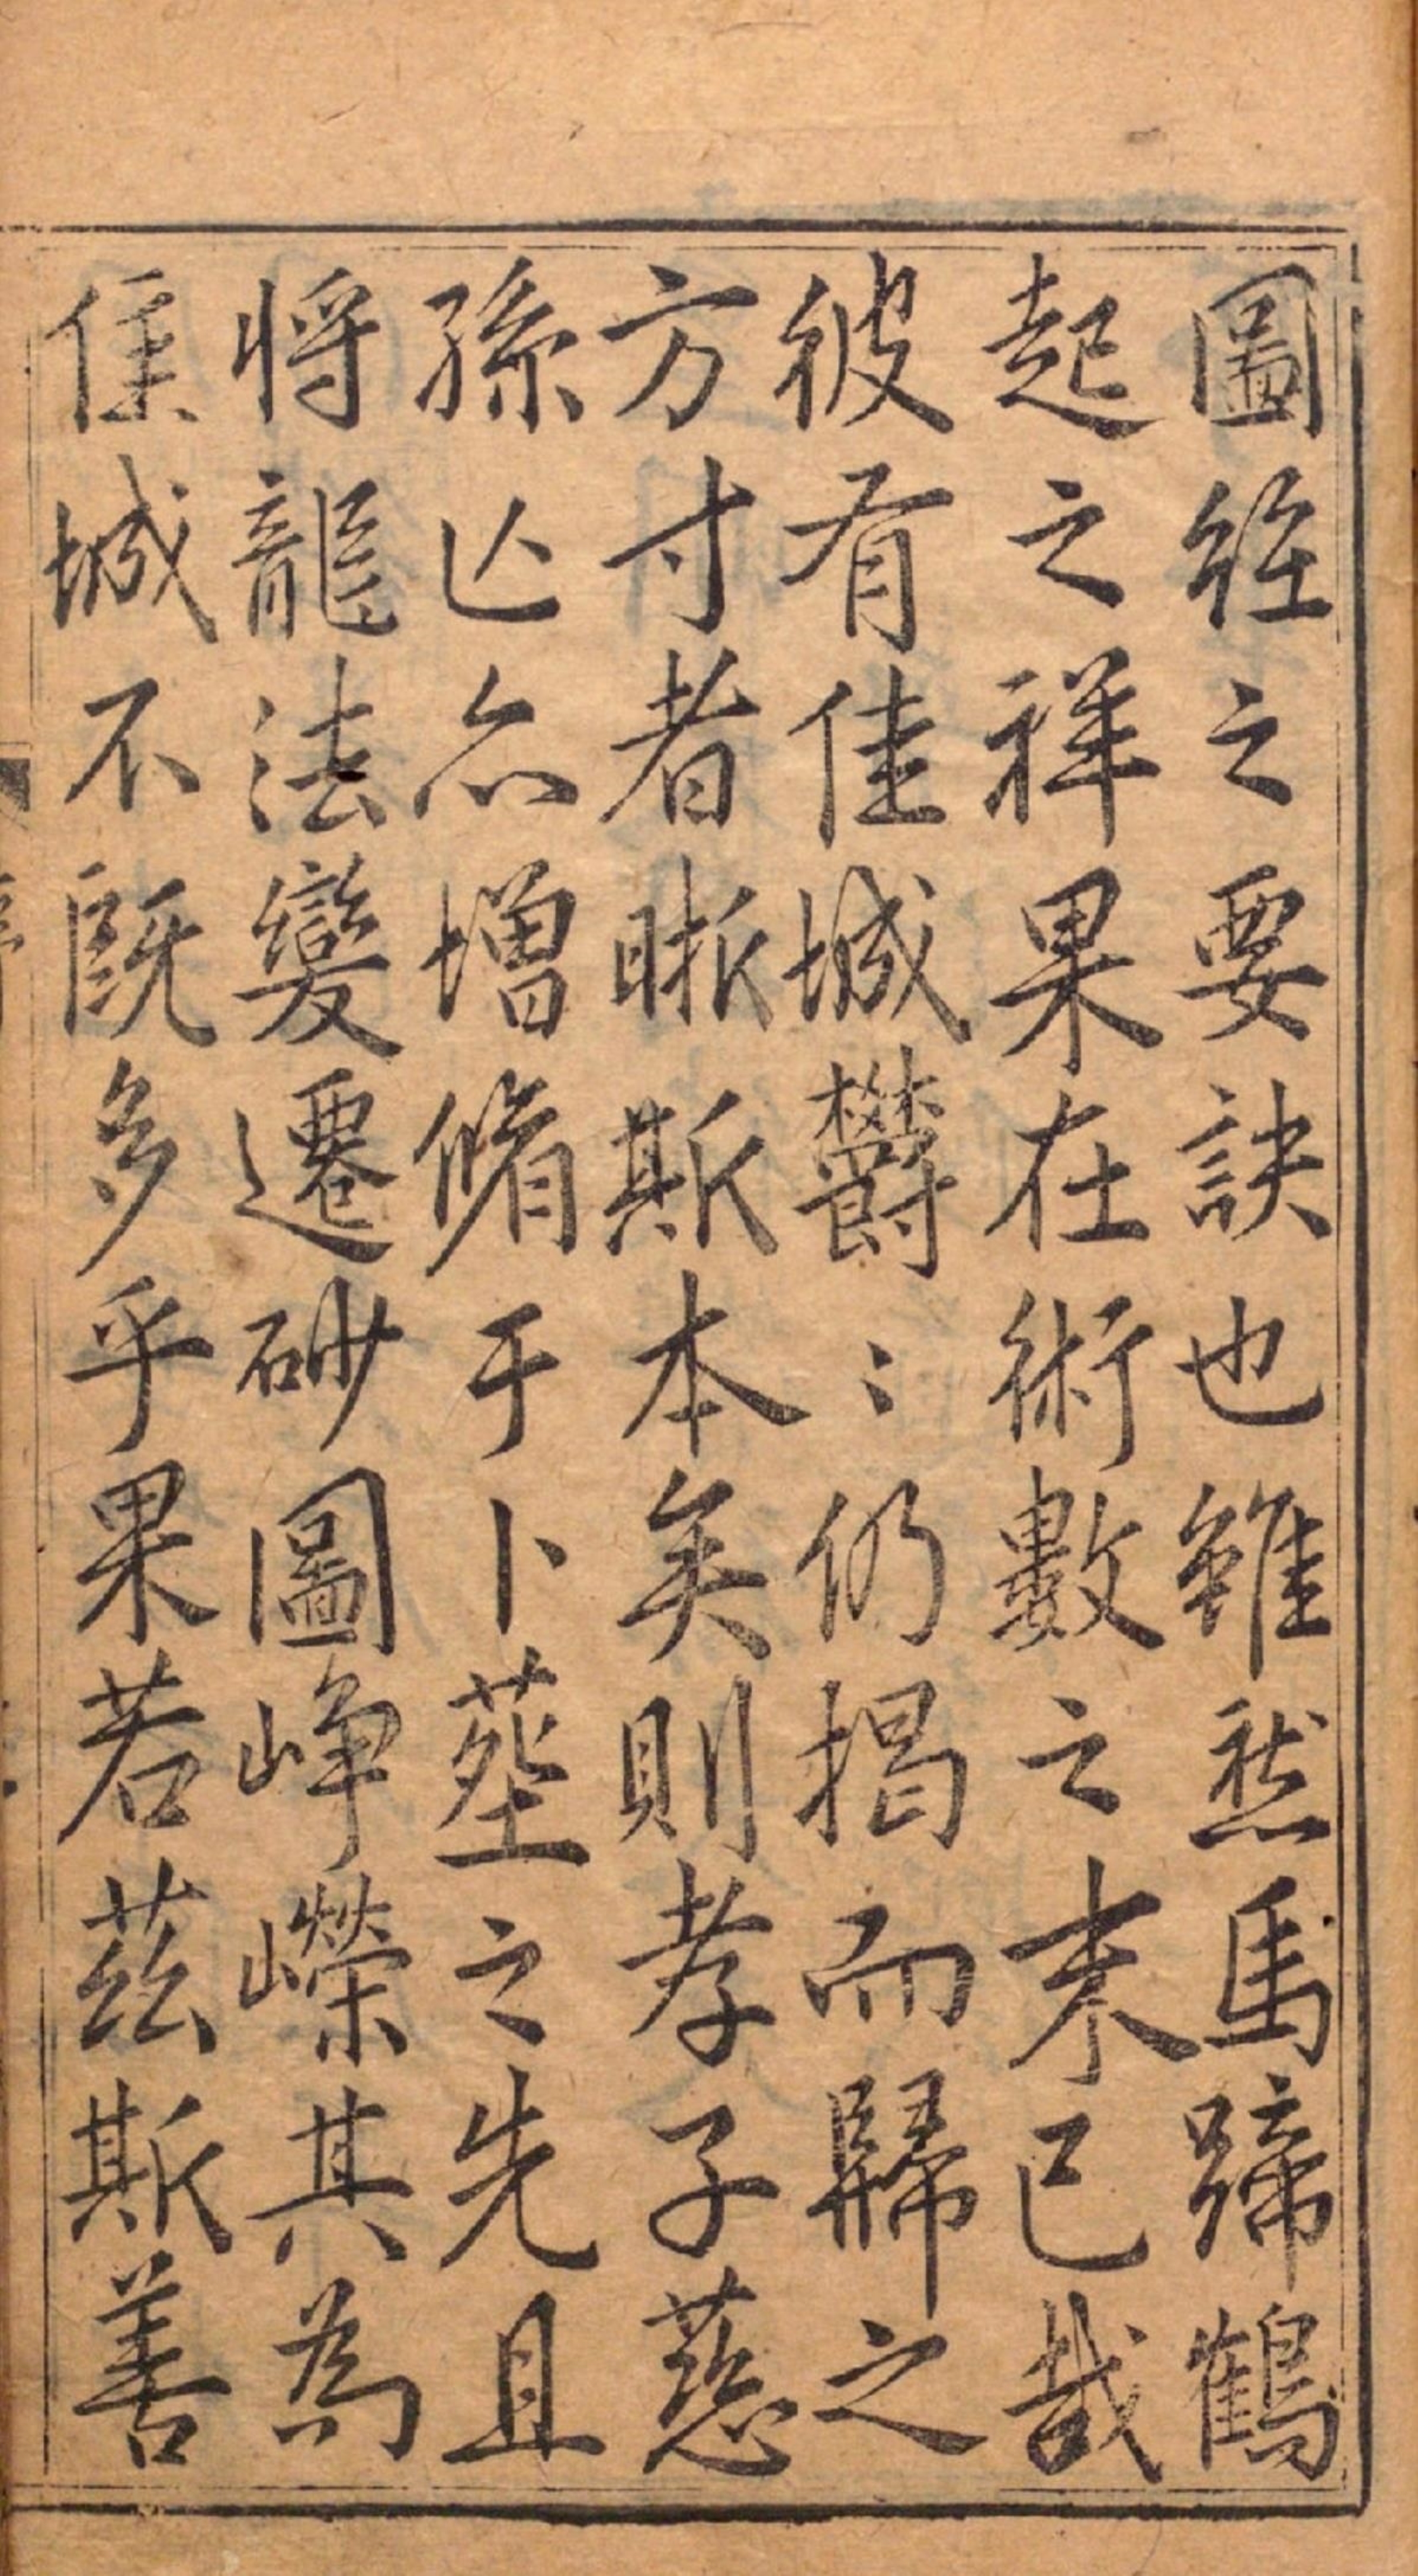 圖經之要訣也雖然馬蹄鶴
起之祥果在術數之末已哉
彼有佳城欝〻仍揭而歸之
方寸者眎斯本矣則孝子慈
孫亾亦增脩于卜塟之先且
將龍法變遷砂圖崢嶸其為
佳城不既多乎果若茲斯善